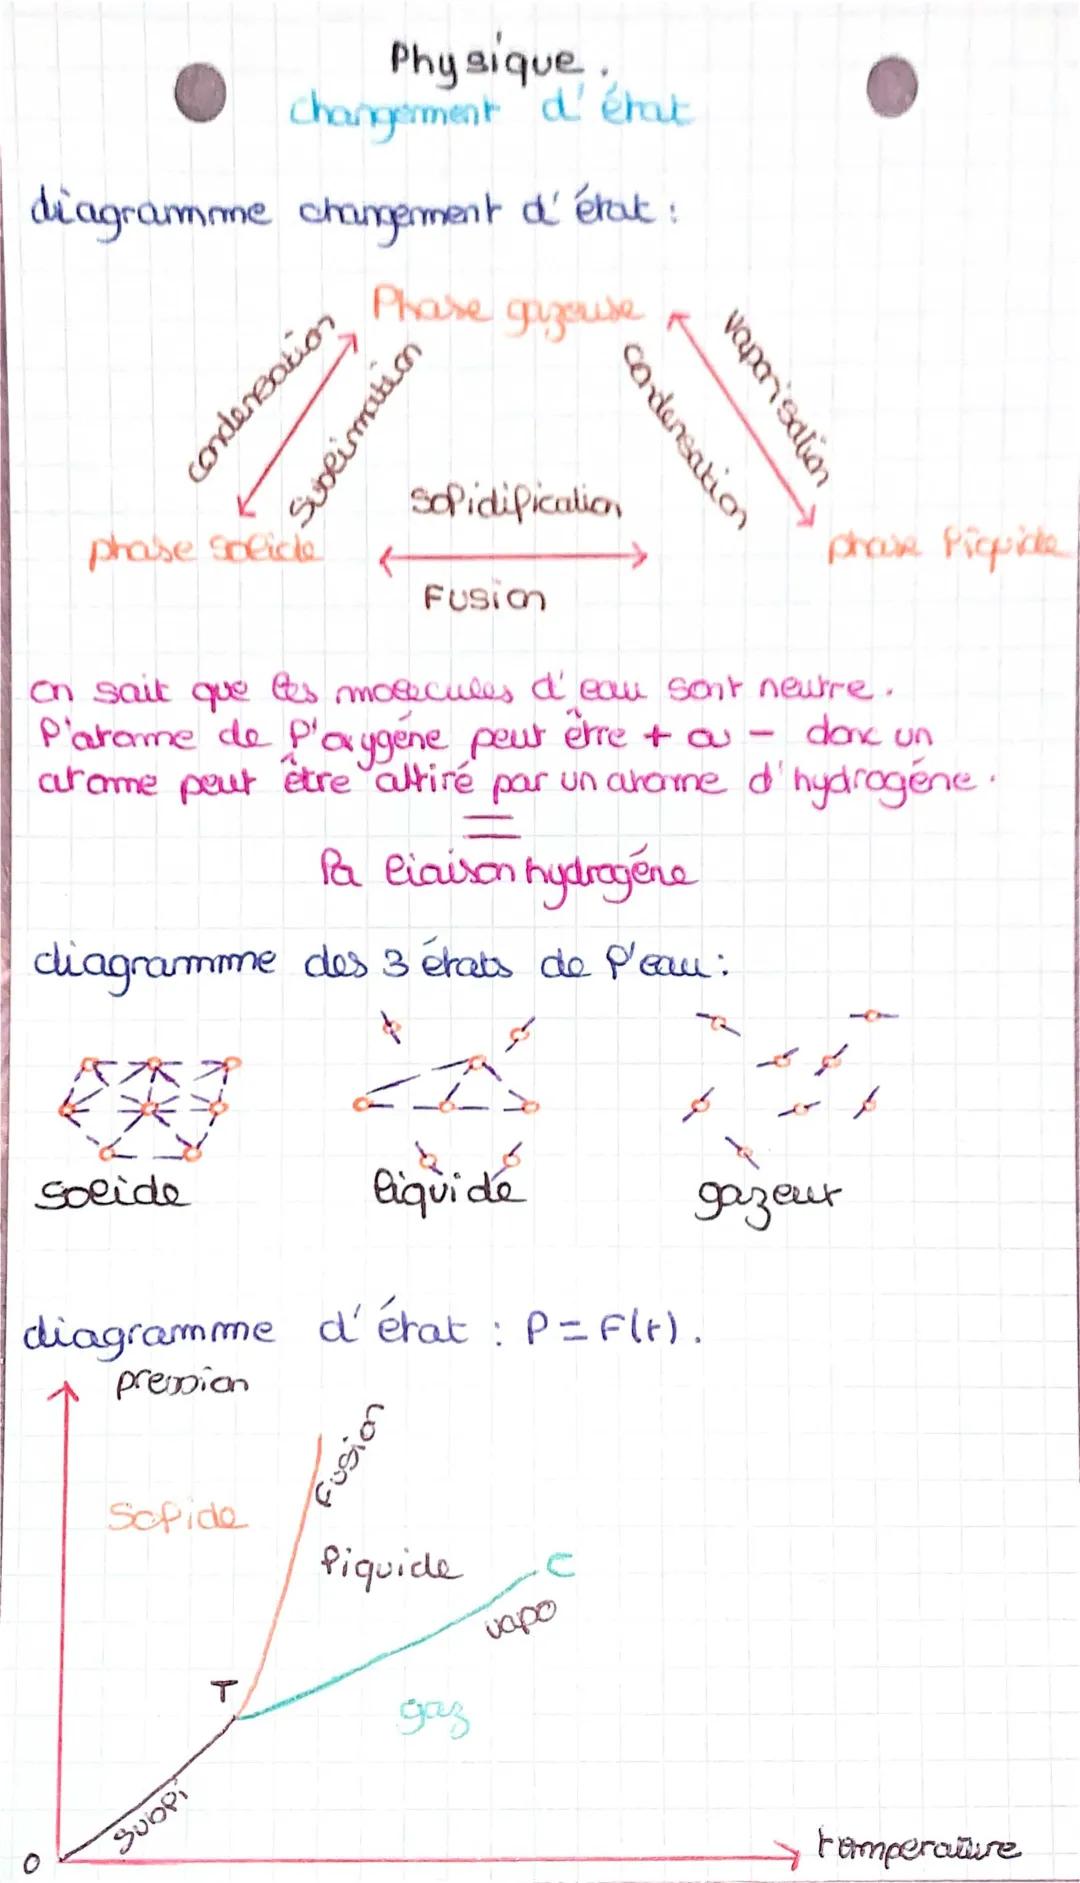 Physique.
changement d'état
diagramme changement d'état :
Phase gazeuse
condensation
sublimation
condensation
vaporisation
solidification
phase solide
phase liquide
Fusion
on sait que les molécules d'eau sont neutre.
l'atome de l'oxygéne peut être + ou - donc un
atome peut être attiré par un atome d'hydrogéne.
=
la liaison hydrogéne
diagramme des 3 états de l'eau :
solide
liquide
gazeux
diagramme d'état : P = F(t).
pression
Fusion
Solide
liquide
C
vapo
T
gaz
subli
0
température